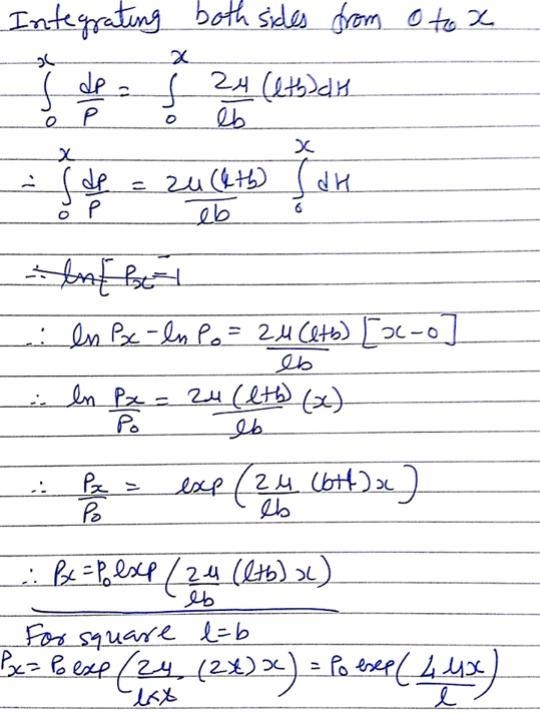 Integrating both sides from 0 to x
∫₀ˣ dP/P = ∫₀ˣ 2μ/lb (l+b)dH
∴ ∫₀ˣ dP/P = 2μ(l+b)/lb ∫₀ˣ dH
∴ ln[Px-1
∴ ln Px - ln P₀ = 2μ(l+b)/lb [x-0]
∴ ln Px/P₀ = 2μ(l+b)/lb (x)
∴ Px/P₀ = exp(2μ/lb (b+l)x)
∴ Px = P₀ exp(2μ/lb (l+b)x)
For square l=b
Px = P₀ exp(2μ/l×l (2l)x) = P₀ exp(4μx/l)